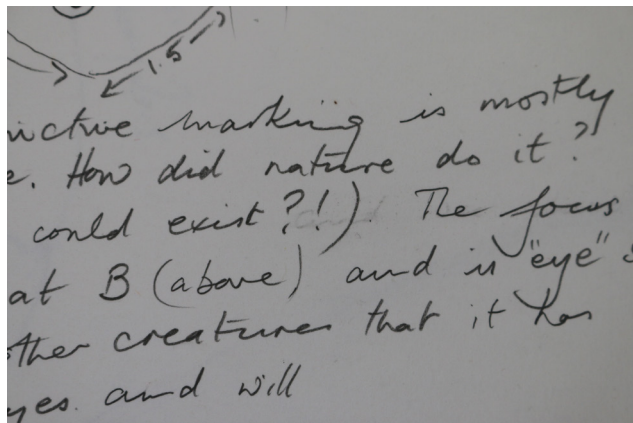 1.5
marking is mostly
How did nature do it?
could exist?!). The focus
at B (above) and is "eye"
other creatures that it has
and will